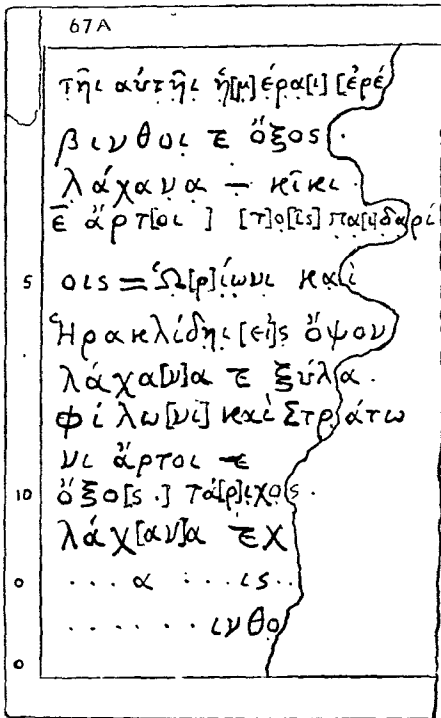 67A
τῆι αὐτῆι ἡ[μ]έρα[ι] [ἐρέ
βινθοι ε ὄξος .
λάχανα – κῖκι .
ε̄ ἄρτ[οι ] [τ]ο[ῖς] πα[ι]δαρί
5 οις = Ὡ[ρ]ίωνι καὶ
Ἡρακλίδηι [εἰ]ς ὄψον
λάχα[ν]α ε ξύλα .
φίλω[νι] καὶ Στράτω
νι ἄρτοι
10 ὄξο[ς .] τά[ρ]ιχος .
λάχ[αν]α εχ
. . . α . . . ις . .
. . . . . . ινθο